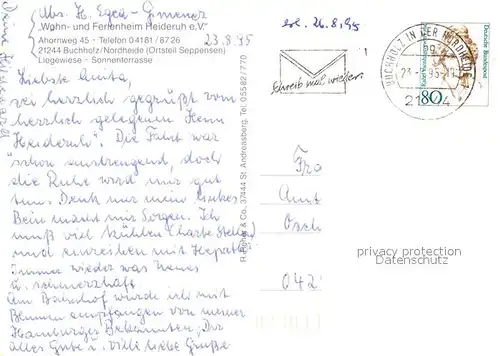 Abs. H. Egea-Gmener
Wohn- und Ferienheim Heideruh e.V.
Ahornweg 45 - Telefon 04181 / 8726
21244 Buchholz/Nordheide (Ortsteil Seppensen)
Liegewiese - Sonnenterrasse
23.8.95
Liebste Anita,
sei herzlich gegrüßt vom
herrlich gelegenen Heim
"Heideruh". Die Fahrt war
schon anstrengend, doch
die Ruhe wird mir gut
tun. Denk nur mein linkes
Bein macht mir Sorgen. Ich
muß viel kühlen (harte Stelle)
und einreiben mit Hepathr.
Immer wieder was Neues
u. schmerzhaft.
Am Bahnhof wurde ich mit
Blumen empfangen von meiner
Hamburger Bekannten. Dir
alles Gute u. viele liebe Grüße
Deine
37444 St. Andreasberg, Tel. 05582/770
erl. 26.8.95
Schreib mal wieder!
BUCHHOLZ IN DER NORDHEIDE
23.-8.95-
Deutsche Bundespost
80
Fra
Anit
Osch
042
privacy protection
Datenschutz